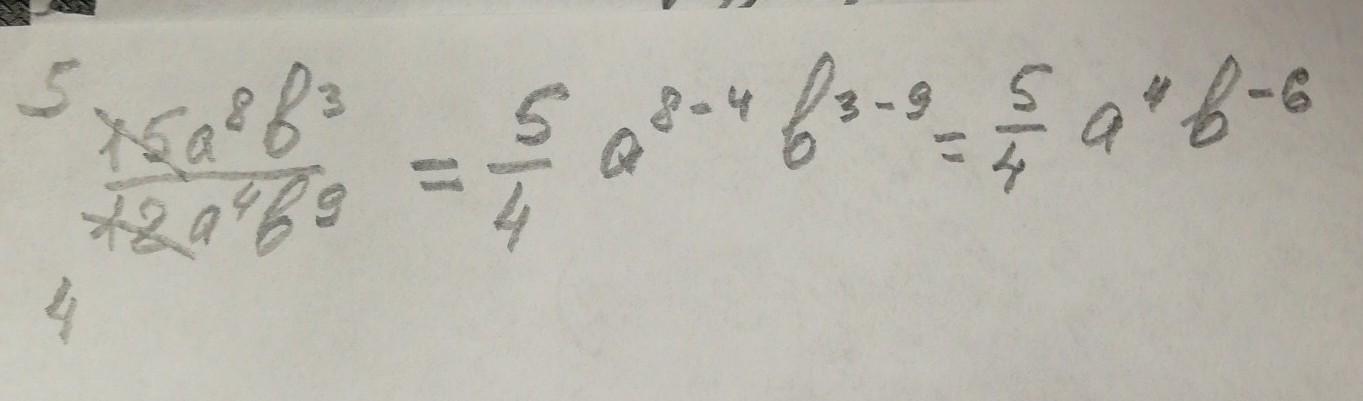 5
15a⁸b³/12a⁴b⁹ = 5/4 a⁸⁻⁴ b³⁻⁹ = 5/4 a⁴ b⁻⁶
4